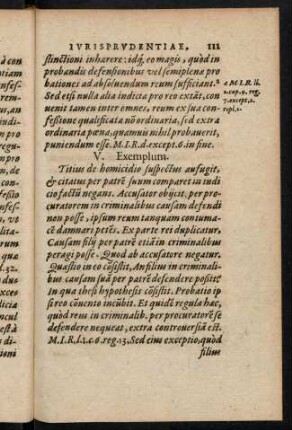 IVRISPRVDENTIAE. 111
stinctioni inharere: idq́; eo magis, quòd in
probandis defensionibus vel semiplenæ pro
bationes ad absoluendum reum sufficiant.
Sed etsi nulla alia indicta pro reo extãt, con
uenit tamen inter omnes, reum ex sua con-
fessione qualificata nō ordinaria, sed extra
ordinaria pœna, quamuis nihil probauerit,
puniendum esse. M.I.R.d. except. 6. in fine.
a M.I.R. li.
1. cap. 9. reg.
7. except. 1.
repl. 1.
V. Exemplum.
Titius de homicidio suspectus aufugit,
& citatus per patrẽ suum comparet in iudi
cio factũ negans. Accusator obijcit, per pro-
curatorem in criminalibus causas defendi
non posse, ipsum reum tanquam contuma-
cẽ damnari petẽs. Ex parte rei duplicatur.
Causam filij per patrẽ etiã in criminalibus
peragi posse. Quod ab accusatore negatur.
Quæstio in eo cõsistit, An filius in criminali-
bus causam suã per patrẽ defendere possit;
In qua thesis hypothesis cõsistit. Probatio ip
si reo cõuento incũbit. Et quidẽ regula hæc,
quòd reus in criminalib. per procuratorẽ se
defendere nequeat, extra controuersiã est.
M.I.R.l.1.c.6.reg.13. Sed eius exceptio, quòd
filius